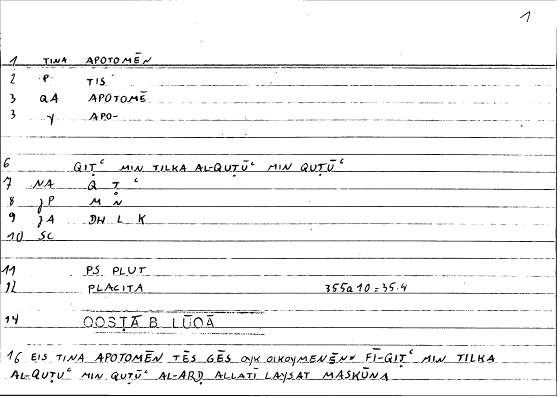 1
1 TINA APOTOMĒN
2 P TIS
3 QA APOTOMĒ
3 y APO-
6 QIṬʿ MIN TILKA AL-QUṬŪʿ MIN QUṬŪʿ
7 NA Q Ṭ ʿ
8 JP M N
9 JA DH L K
10 SC
11 PS. PLUT
12 PLACITA 355a10=35.4
14 QOSṬĀ B. LŪQĀ
16 EIS TINA APOTOMĒN TĒS GĒS OYK OIKOYMENĒN* FĪ-QIṬʿ MIN TILKA
AL-QUṬUʿ MIN QUṬŪʿ AL-ARḌ ALLATĪ LAYSAT MASKŪNA